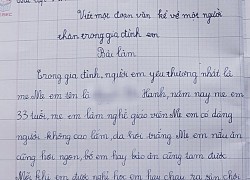 Viết một đoạn văn kể về một người
thân trong gia đình em
Bài làm
Trong gia đình, người em yêu thương nhất là
mẹ. Mẹ em tên là Hạnh, năm nay mẹ em
33 tuổi, mẹ em làm nghề giáo viên. Mẹ em có dáng
người không cao lắm, da hơi trắng. Mẹ em nấu ăn
cũng hơi ngon, bố em hay bảo ăn cũng tạm được.
Mỗi khi em được nghỉ học em hay chạy ra sân chơi